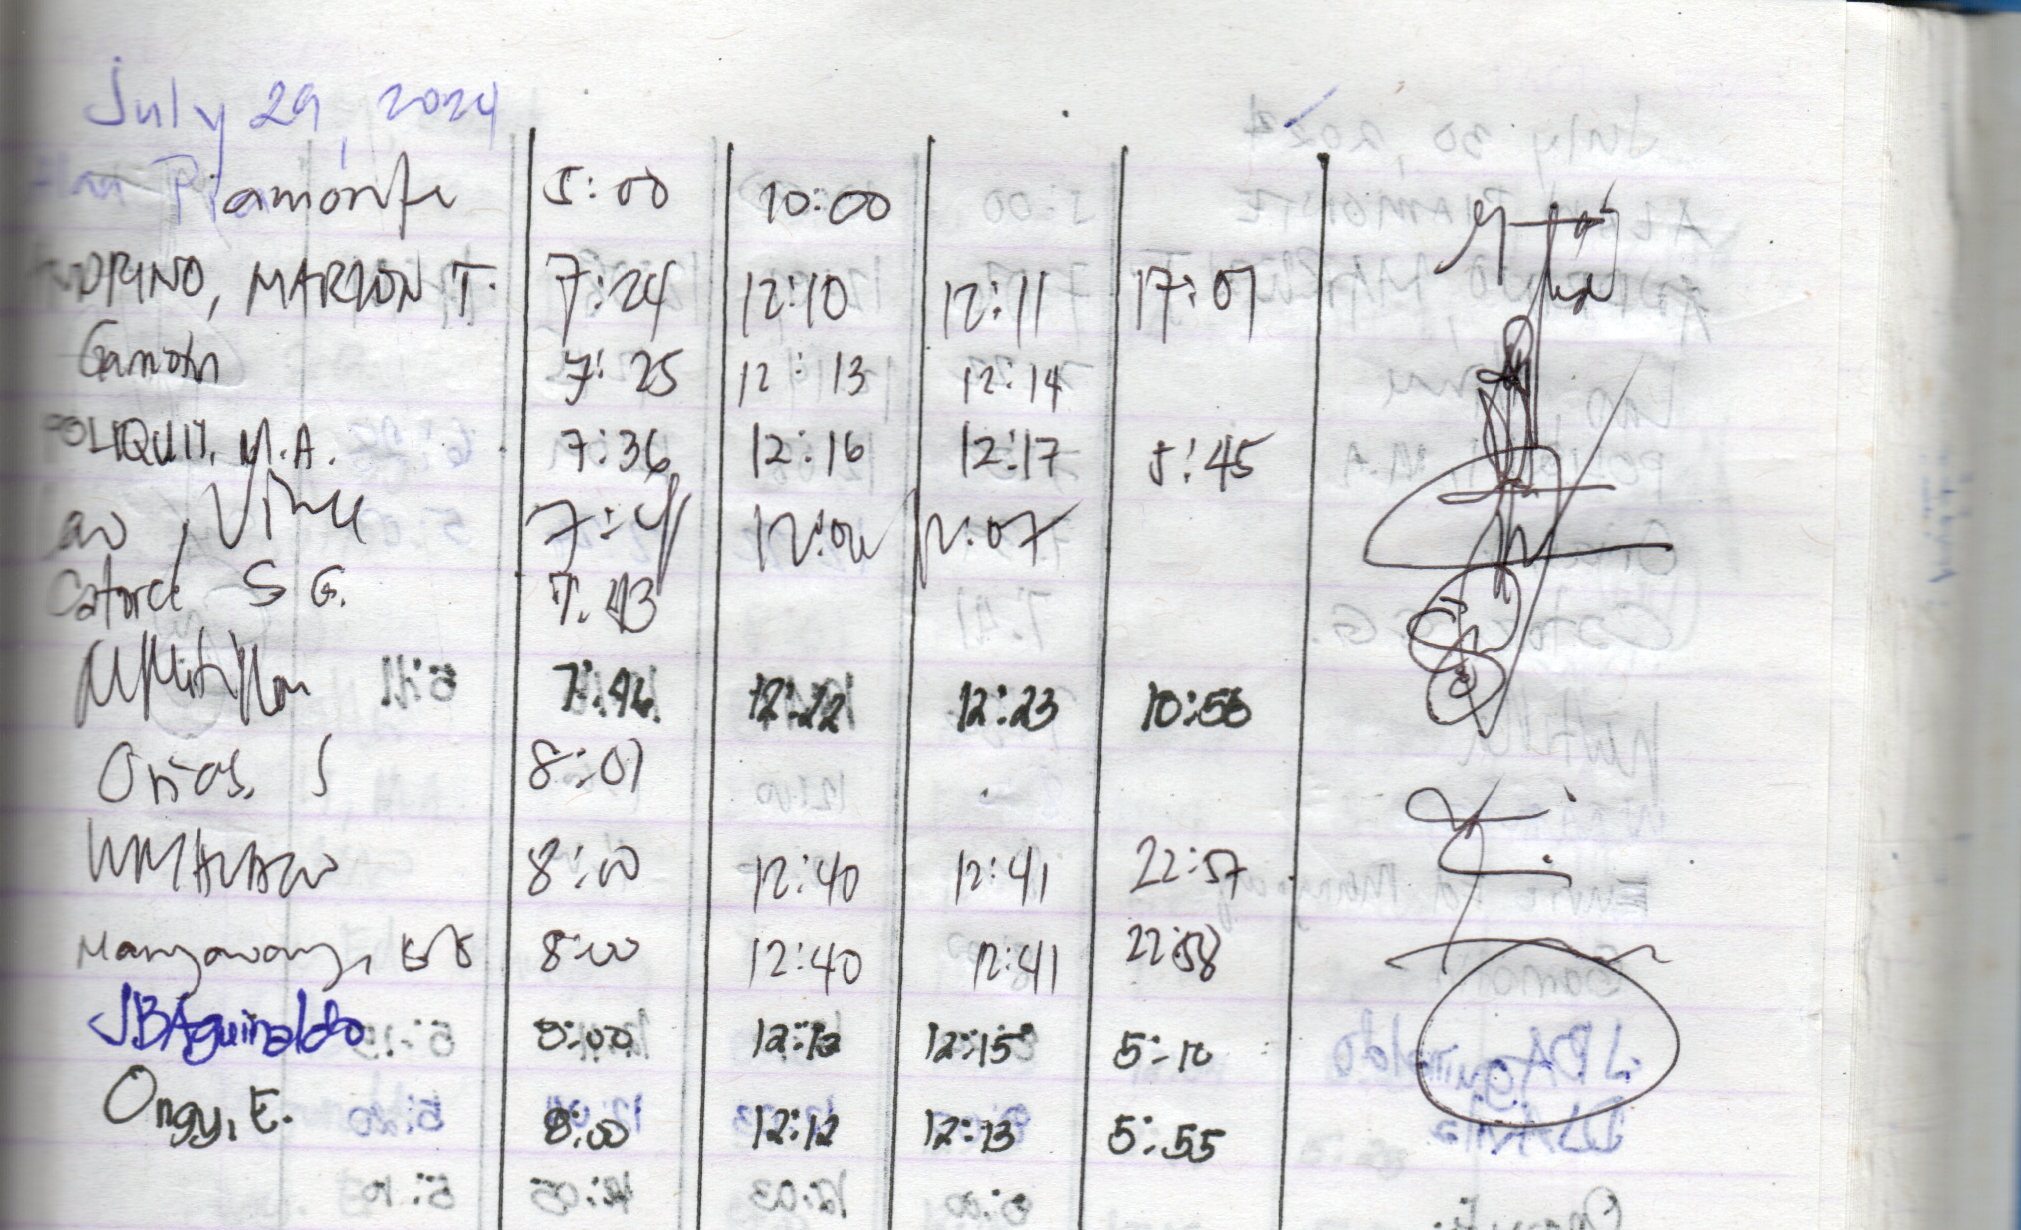 July 29, 2024
Piamonte 5:00 10:00
ANDRINO, MARLON T. 7:24 12:10 12:11 17:07
7:25 12:13 12:14
POLIQUIT, M.A. 7:36 12:16 12:17 5:45
Lao, Vince 7:41 12:06 12:07
Catorce S G. 7:43
7:46 12:22 12:23 10:56
Orias, S 8:01
8:00 12:40 12:41 22:57
Mangawang, 8:00 12:40 12:41 22:58
JBAguinaldo 8:00 12:13 12:15 5:10
Ongy, E. 8:00 12:12 12:13 5:55